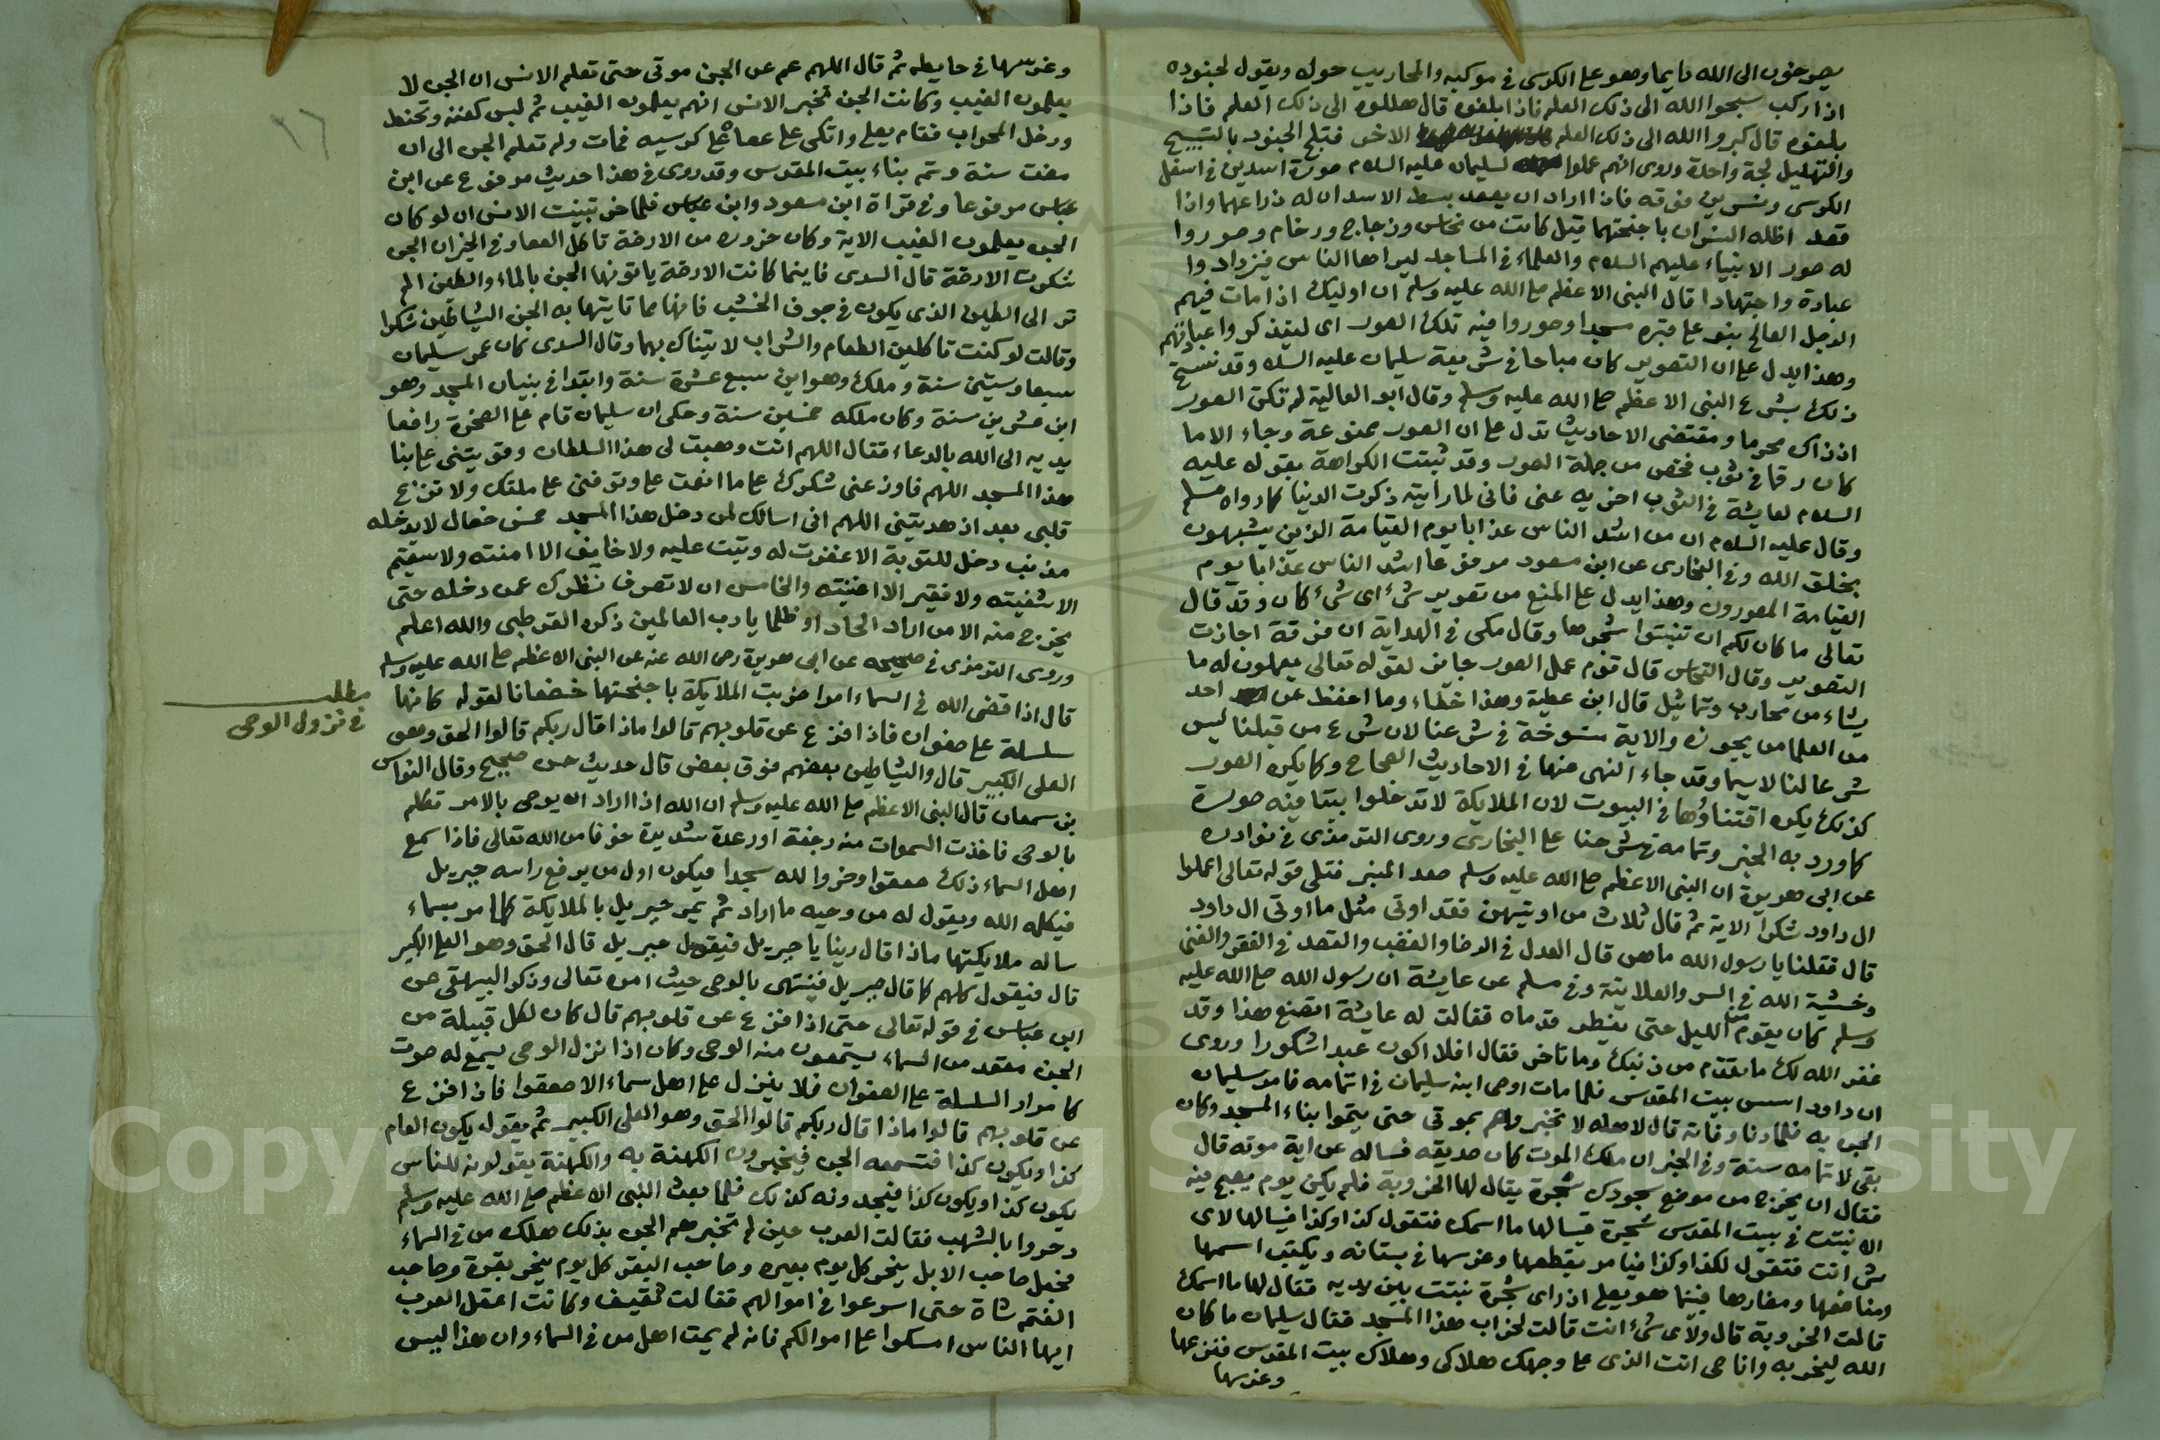 يصرخون الى الله دايما وهو على الكرسى فى موكبه والمحاريب حوله ويقول لجنوده
اذا ركب سبحوا الله الى ذلك العلم فاذا بلغوه قال هللوه الى ذلك العلم فاذا
بلغوه قال كبروا الله الى ذلك العلم الاخر فتلج الجنود بالتسبيح
والتهليل لجة واحدة وروى انهم عملوا لسليمان عليه السلام صورة اسدين فى اسفل
الكرسى ونسرين فوقه فاذا اراد ان يصعد بسط الاسدان له ذراعهما واذا
قعد اظله النسران باجنحتهما قيل كانت من نحاس وزجاج ورخام وصوروا
له صور الانبياء عليهم السلام والعلماء فى المساجد ليراها الناس فيزدادوا
عبادة واجتهادا قال النبى الاعظم صلى الله عليه وسلم ان اوليك اذا مات فيهم
الرجل الصالح بنو على قبره مسجدا وصوروا فيه تلك الصور اى ليتذكروا عباداتهم
وهذا يدل على ان التصوير كان مباحا فى شريعة سليمان عليه السلام وقد نسخ
ذلك بشرع النبى الاعظم صلى الله عليه وسلم وقال ابو العالية لم تكن الصور
اذ ذاك محرما ومقتضى الاحاديث تدل على ان الصور ممنوعة وجاء الا ما
كان رقما فى ثوب فخص من جملة الصور وقد ثبتت الكراهة بقوله عليه
السلام لعايشة فى الثوب اخريه عنى فانى لما رايته ذكرت الدنيا كما رواه مسلم
وقال عليه السلام ان من اشد الناس عذابا يوم القيامة الذين يشبهون
بخلق الله وفى البخارى عن ابن مسعود مرفوعا اشد الناس عذابا يوم
القيامة المصورون وهذا يدل على المنع من تصوير شىء اى شىء كان وقد قال
تعالى ما كان لكم ان تنبتوا شجرها وقال مكى فى الهداية ان فرقة اجازت
التصوير وقال النحاس قال قوم عمل الصور جايز لقوله تعالى يعملون له ما
يشاء من محاريب وتماثيل قال ابن عطية وهذا خطاء وما احفظ عن احد
من العلما من يجوزه والاية منسوخة فى شرعنا لان شرع من قبلنا ليس
شرعا لنا لاسيما وقد جاء النهى عنها فى الاحاديث الصحاح وكما يكره الصور
كذلك يكره اقتناؤها فى البيوت لان الملايكة لا تدخلوا بيتا فيه صورة
كما ورد به الخبر وتمامه فى شرحنا على البخارى وروى الترمذى فى نوادره
عن ابى هريرة ان النبى الاعظم صلى الله عليه وسلم صعد المنبر فتلى قوله تعالى اعملوا
ال داود شكرا الاية ثم قال ثلاث من اوتيهن فقد اوتى مثل ما اوتى ال داود
قال فقلنا يا رسول الله ما هن قال العدل فى الرضا والغضب والقصد فى الفقر والغنى
وخشية الله فى السر والعلانية وفى مسلم عن عايشة ان رسول الله صلى الله عليه
وسلم كان يقوم من الليل حتى يفطر قدماه فقالت له عايشة اتصنع هذا وقد
غفر الله لك ما تقدم من ذنبك وما تاخر فقال افلا اكون عبدا شكورا وروى
ان داود اسس بيت المقدس فلما مات اوصى ابنه سليمان فى اتمامه فامر سليمان
الجن به فلما دنا وفاته قال لاهله لا تخبروهم بموتى حتى يتموا بناء المسجد وكان
بقى لاتمامه سنة وفى الخبر ان ملك الموت كان صديقه فساله عن اية موته قال
فقال ان يخرج من موضع سجودك شجرة يقال لها الخروبة فلم يكن يوم يصبح فيه
الا نبتت فى بيت المقدس شجرة فيسالها ما اسمك فتقول كذا وكذا فيسالها لاى
شى انت فتقول لكذا وكذا فيامر بقطعها وغرسها فى بستانه ويكتب اسمها
ومنافعها ومضارها فبينما هو يصلى اذ راى شجرة نبتت بين يديه فقال لها ما اسمك
قالت الخروبة قال ولاى شىء انت قالت لخراب هذا المسجد فقال سليمان ما كان
الله ليخربه وانا حى انت الذى على وجهك هلاكى وهلاك بيت المقدس فنزعها
وغرسها
وغرسها فى حايطه ثم قال اللهم عم عن الجن موتى حتى تعلم الانس ان الجن لا
يعلمون الغيب وكانت الجن تخبر الانس انهم يعلمون الغيب ثم لبس كفنه وتحنط
ودخل المحراب فقام يصلى واتكى على عصاه على كرسيه فمات ولم تعلم الجن الى ان
مضت سنة وتم بناء بيت المقدس وقد روى فى هذا حديث مرفوع عن ابن
عباس مرفوعا وفى قراة ابن مسعود وابن عباس فلما خر تبينت الانس ان لو كان
الجن يعلمون الغيب الاية وكان خروره من الارضة تاكل العصا وفى الخبر ان الجن
شكرت الارضة قال السدى فاينما كانت الارضة ياتونها الجن بالماء والطين الم
تر الى الطين الذى يكون فى جوف الخشب فانها مما تايتها به الجن الشياطين شكرا
وقالت لو كنت تاكلين الطعام والشراب لاتيناك بهما وقال السدى كان عمر سليمان
سبعا وستين سنة وملك وهو ابن سبع عشرة سنة وابتدا فى بنيان المسجد وهو
ابن عشرين سنة وكان ملكه خمسين سنة وحكى ان سليمان قام على الصخرة رافعا
يديه الى الله بالدعاء فقال اللهم انت وهبت لى هذا السلطان وقويتنى على بنا
هذا المسجد اللهم فاوزعنى شكرك على ما انعمت على وتوفنى على ملتك ولا تزغ
قلبى بعد اذ هديتنى اللهم انى اسالك لمن دخل هذا المسجد خمس خصال لا يدخله
مذنب دخل للتوبة الا غفرت له وتبت عليه ولا خايف الا امنته ولا سقيم
الا شفيته ولا فقير الا اغنيته والخامس ان لا تصرف نظرك عمن دخله حتى
يخرج منه الا من اراد الحاد او ظلما يا رب العالمين ذكره القرطبى والله اعلم
وروى الترمذى فى صحيحه عن ابى هريرة رضى الله عنه عن النبى الاعظم صلى الله عليه وسلم
قال اذا قضى الله فى السماء امرا ضربت الملايكة باجنحتها خضعانا لقوله كانها
سلسلة على صفوان فاذا فزع عن قلوبهم قالوا ماذا قال ربكم قالوا الحق وهو
العلى الكبير قال والشياطين بعضهم فوق بعض قال حديث حسن صحيح وقال النواس
بن سمعان قال النبى الاعظم صلى الله عليه وسلم ان الله اذا اراد ان يوحى بالامر تكلم
بالوحى فاخذت السموات منه رجفة او رعدة شديدة خوفا من الله تعالى فاذا سمع
اهل السماء ذلك صعقوا وخروا لله سجدا فيكون اول من يرفع راسه جبريل
فيكلمه الله ويقول له من وحيه ما اراد ثم يمر جبريل بالملايكة كلما مر بسماء
ساله ملايكتها ماذا قال ربنا يا جبريل فيقول جبريل قال الحق وهو العلى الكبير
قال فيقول كلهم كما قال جبريل فينتهى بالوحى حيث امره تعالى وذكر البيهقى عن
ابن عباس فى قوله تعالى حتى اذا فزع عن قلوبهم قال كان لكل قبيلة من
الجن مقعد من السماء يستمعون منه الوحى وكان اذا نزل الوحى يسمع له صوت
كامرار السلسلة على الصفوان فلا ينزل على اهل سماء الا صعقوا فاذا فزع
عن قلوبهم قالوا ماذا قال ربكم قالوا الحق وهو العلى الكبير ثم يقول يكون العام
كذا ويكون كذا فتسمعه الجن فيخبرون الكهنة به والكهنة يقولونه للناس
يكون كذا ويكون كذا فيجدونه كذلك فلما بعث النبى الاعظم صلى الله عليه وسلم
دحروا بالشهب فقالت العرب حين لم تخبرهم الجن بذلك هلك من فى السماء
فجعل صاحب الابل ينحر كل يوم بعيره وصاحب البقر كل يوم ينحر بقرة وصاحب
الغنم شاة حتى اسرعوا فى اموالهم فقالت ثقيف وكانت اعقل العرب
ايها الناس امسكوا على اموالكم فانه لم يمت اهل من فى السماء وان هذا ليس
مطلب
فى نزول الوحى
١٦